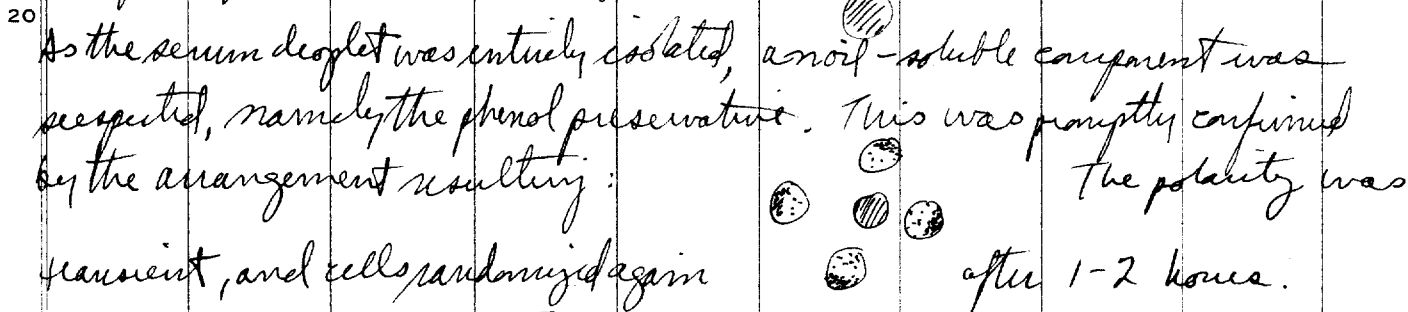 20
As the serum droplet was entirely isolated, an oil-soluble component was
suspected, namely the phenol preservative. This was promptly confirmed
by the arrangement resulting: The polarity was
transient, and cells randomized again after 1-2 hours.